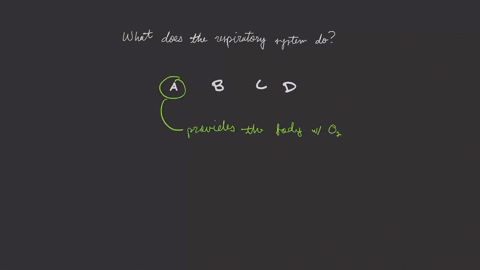 What does the respiratory system do?
A B C D
provides the body w/ O₂